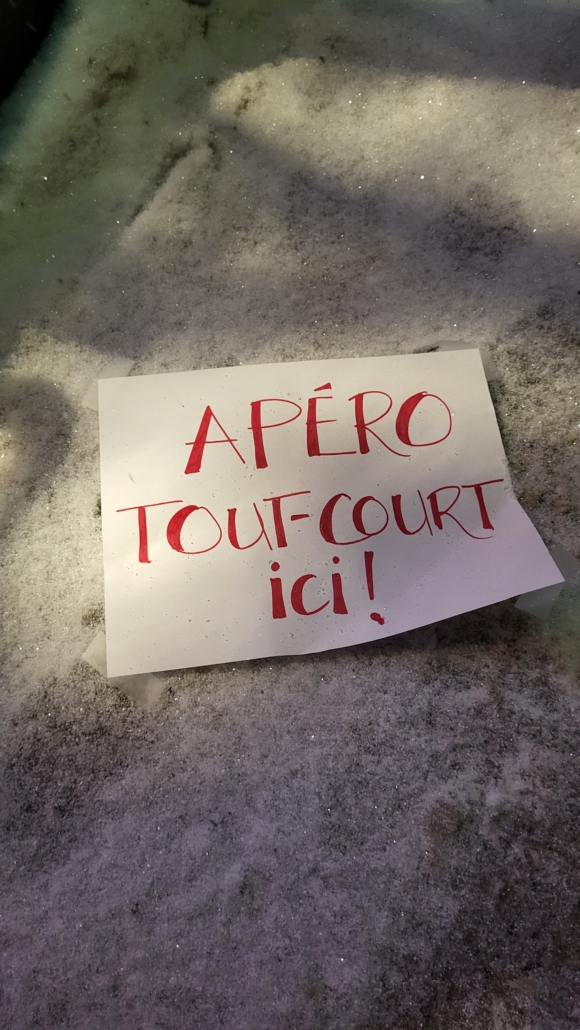 APÉRO
TOUT-COURT
ici!